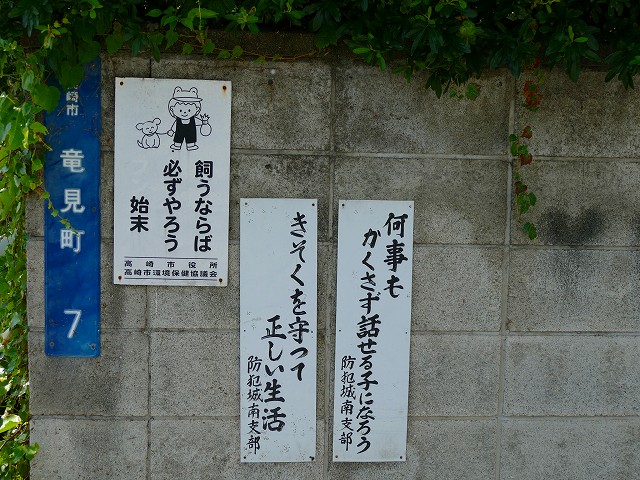 崎市
竜見町
7
飼うならば
必ずやろう
始末
高崎市役所
高崎市環境保健協議会
きそくを守って
正しい生活
防犯城南支部
何事も
かくさず話せる子になろう
防犯城南支部